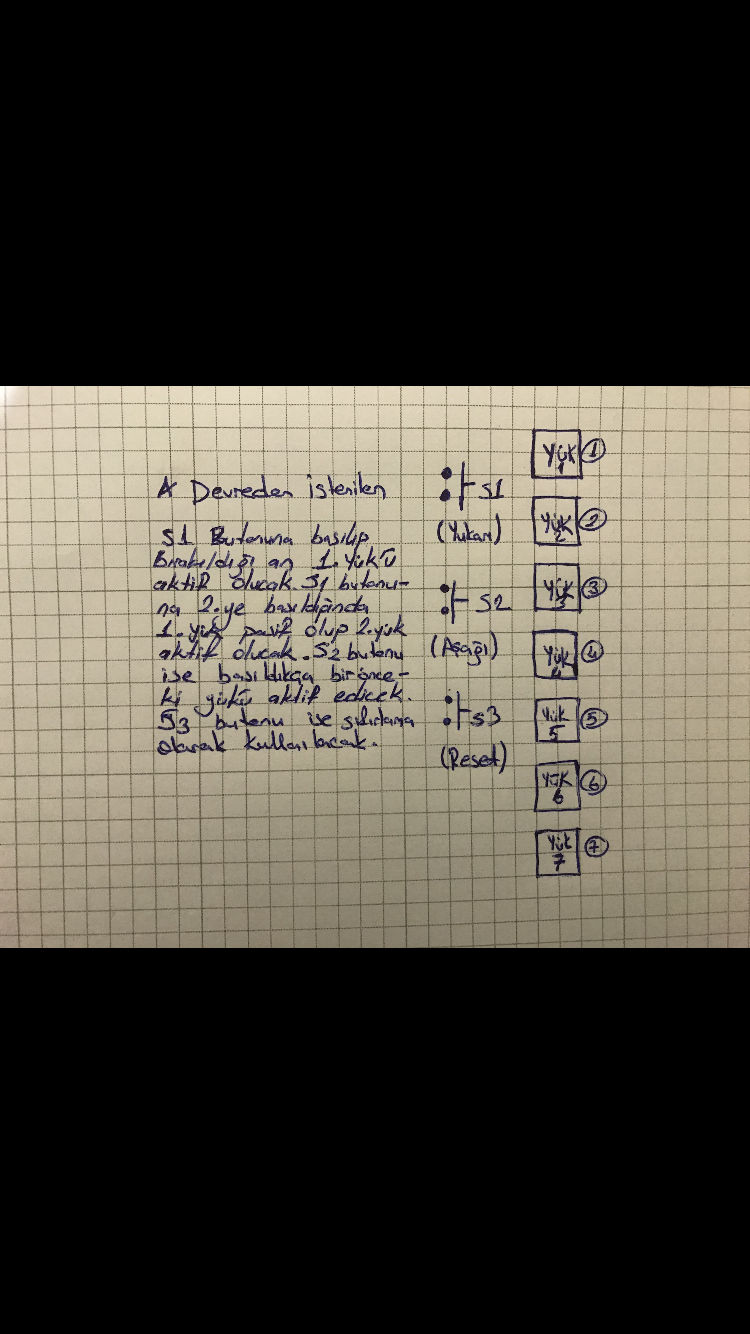 * Devreden istenilen
S1 Butonuna basılıp
Bırakıldığı an 1. yükü
aktif olucak. S1 butonu-
na 2.ye basıldığında
1. yük pasif olup 2. yük
aktif olucak. S2 butonu
ise basıldıkça bir önce-
ki yükü aktif edicek.
S3 butonu ise sıfırlama
olarak kullanılacak.
S1
(Yukarı)
S2
(Aşağı)
S3
(Reset)
Yük 1 ①
Yük 2 ②
Yük 3 ③
Yük 4 ④
Yük 5 ⑤
Yük 6 ⑥
Yük 7 ⑦